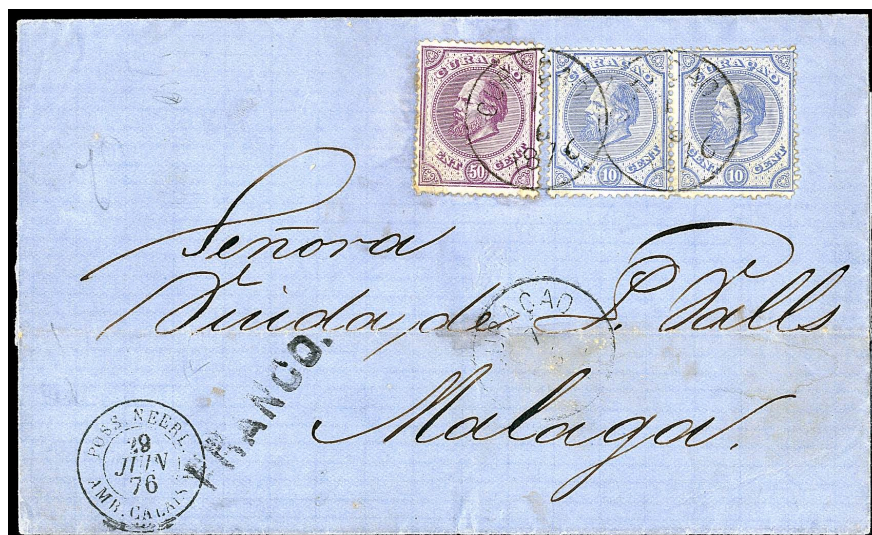 CURAÇAO
CENT 50 CENT
CURAÇAO
CENT 10 CENT
CURAÇAO
CENT 10 CENT
Señora
Viuda, de P. Valls
Malaga.
CURAÇAO
FRANCO.
POSS. NEERL.
29
JUIN
76
AMB. CALAIS